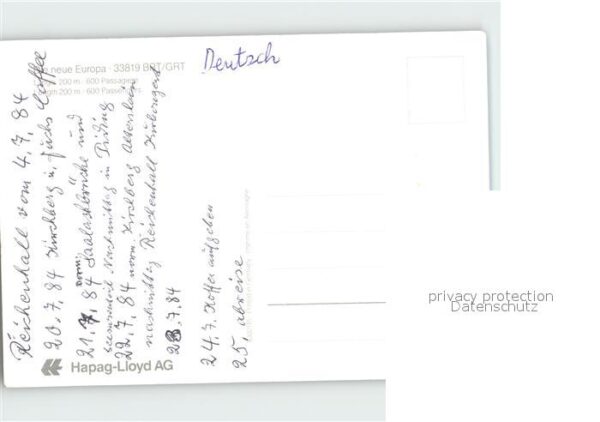 neue Europa · 33819 BRT/GRT
200 m · 600 Passagiere
200 m · 600 Passengers
Deutsch
Reichenhall vom 4.7.84
20.7.84 Kirchberg u. Fuchs Coffee
21.7.84 vorm. Saalachbrücke und
Nachmittag in Piding
22.7.84 vorm. Kirchberg
nachmittag Reichenhall
23.7.84
24.7. Koffer aufgeben
25. abreise
Hapag-Lloyd AG
privacy protection
Datenschutz